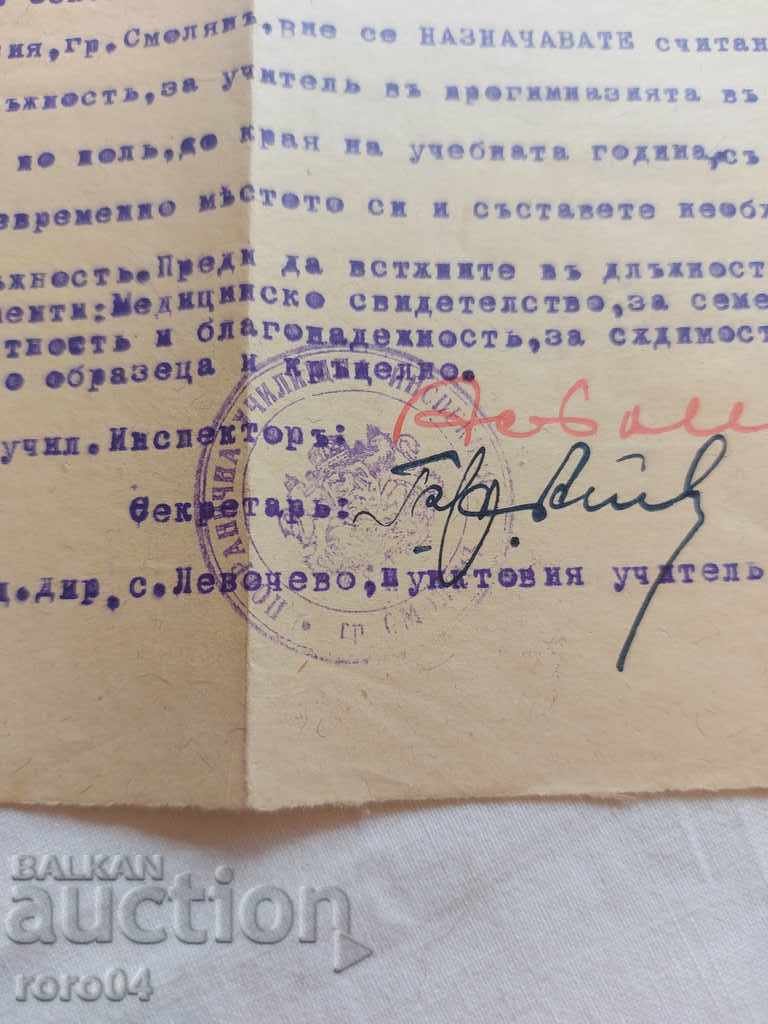 ия, гр. Смолянъ, вие се НАЗНАЧАВАТЕ считан
ъжность, за учитель въ прогимназията въ
по полъ, до края на учебната година, съ
временно мѣстото си и съставете необх
жность. Преди да встѫпите въ длъжност
енти: Медицинско свидетелство, за семе
тность и благонадежность, за сѫдимост
о образеца и кръщелно.
учил. Инспекторъ:
Секретарь:
.дир. с. Левочево, пунктовия учитель
ИНСПЕК
гр. СМ
BALKAN
auction
roro04